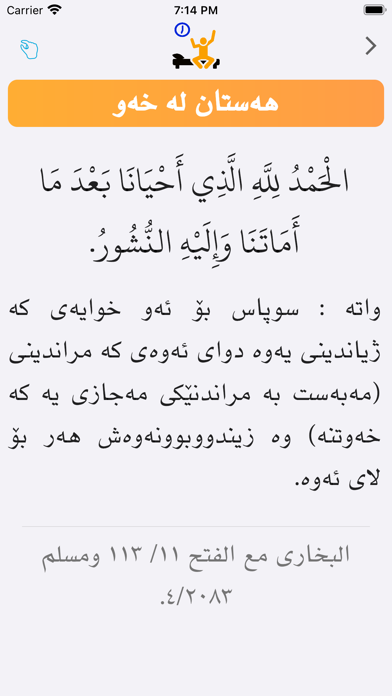 Carrier 7:14 PM
هەستان لە خەو
الْحَمْدُ لِلَّهِ الَّذِي أَحْيَانَا بَعْدَ مَا
أَمَاتَنَا وَإِلَيْهِ النُّشُورُ.
واتە : سوپاس بۆ ئەو خوایەی کە
ژیاندینی یەوە دوای ئەوەی کە مراندینی
(مەبەست بە مراندنێکی مەجازی یە کە
خەوتنە) وە زیندووبوونەوەش هەر بۆ
لای ئەوە.
البخاری مع الفتح ١١/ ١١٣ ومسلم
٤/٢٠٨٣.